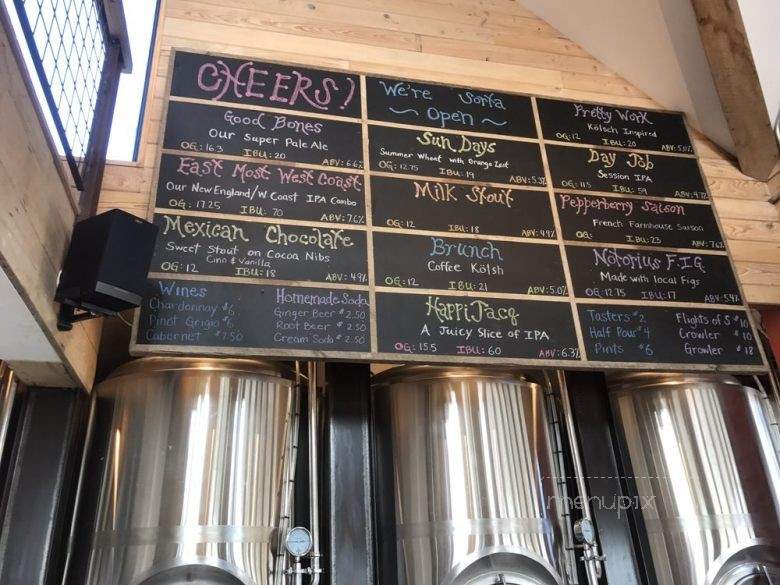 CHEERS!
Good Bones
Our Super Pale Ale
OG: 16.3 IBU: 20 ABV: 6.6%
East Most West Coast
Our New England/W. Coast IPA Combo
OG: 17.25 IBU: 70 ABV: 7.6%
Mexican Chocolate
Sweet Stout on Cocoa Nibs
Cinn & Vanilla
OG: 12 IBU: 18 ABV: 4.9%
Wines
Chardonnay $6
Pinot Grigio $6
Cabernet $7.50
Homemade Soda
Ginger Beer $2.50
Root Beer $2.50
Cream Soda $2.50
We're Sorta
~ Open ~
Sun Days
Summer Wheat with Orange Zest
OG: 12.75 IBU: 19 ABV: 5.3%
Milk Stout
OG: 12 IBU: 18 ABV: 4.9%
Brunch
Coffee Kölsh
OG: 12 IBU: 21 ABV: 5.0%
HappiJacq
A Juicy Slice of IPA
OG: 15.5 IBU: 60 ABV: 6.3%
Pretty Work
Kölsch Inspired
OG: 12 IBU: 20 ABV: 5.0%
Day Job
Session IPA
OG: 11.5 IBU: 59 ABV: 4.7%
Pepperberry Saison
French Farmhouse Saison
OG: IBU: 23 ABV: 7.6%
Notorius F.I.G.
Made with local Figs
OG: 12.75 IBU: 17 ABV: 5.4%
Tasters $2
Half Pour $4
Pints $6
Flights of 5 $10
Crowler $10
Growler $18
menupix